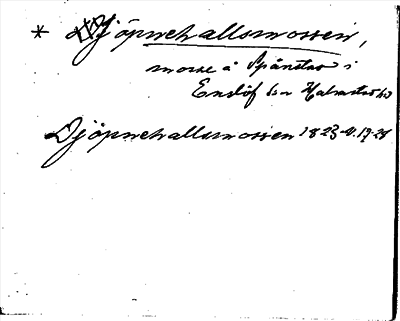 * Djöpnehallsmossen,
mosse å Spånstad i
Enslöf s:n Halmstad hd
Djöpnehallsmossen 1823